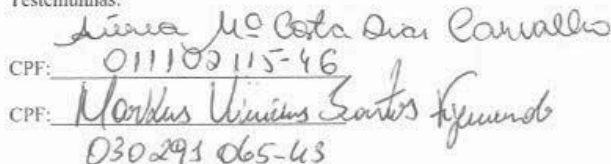 Testemunhas:
Aurea Mª Costa Dias Carvalho
CPF: 011102115-46
CPF: Markus Vinicius Santos
030291065-43